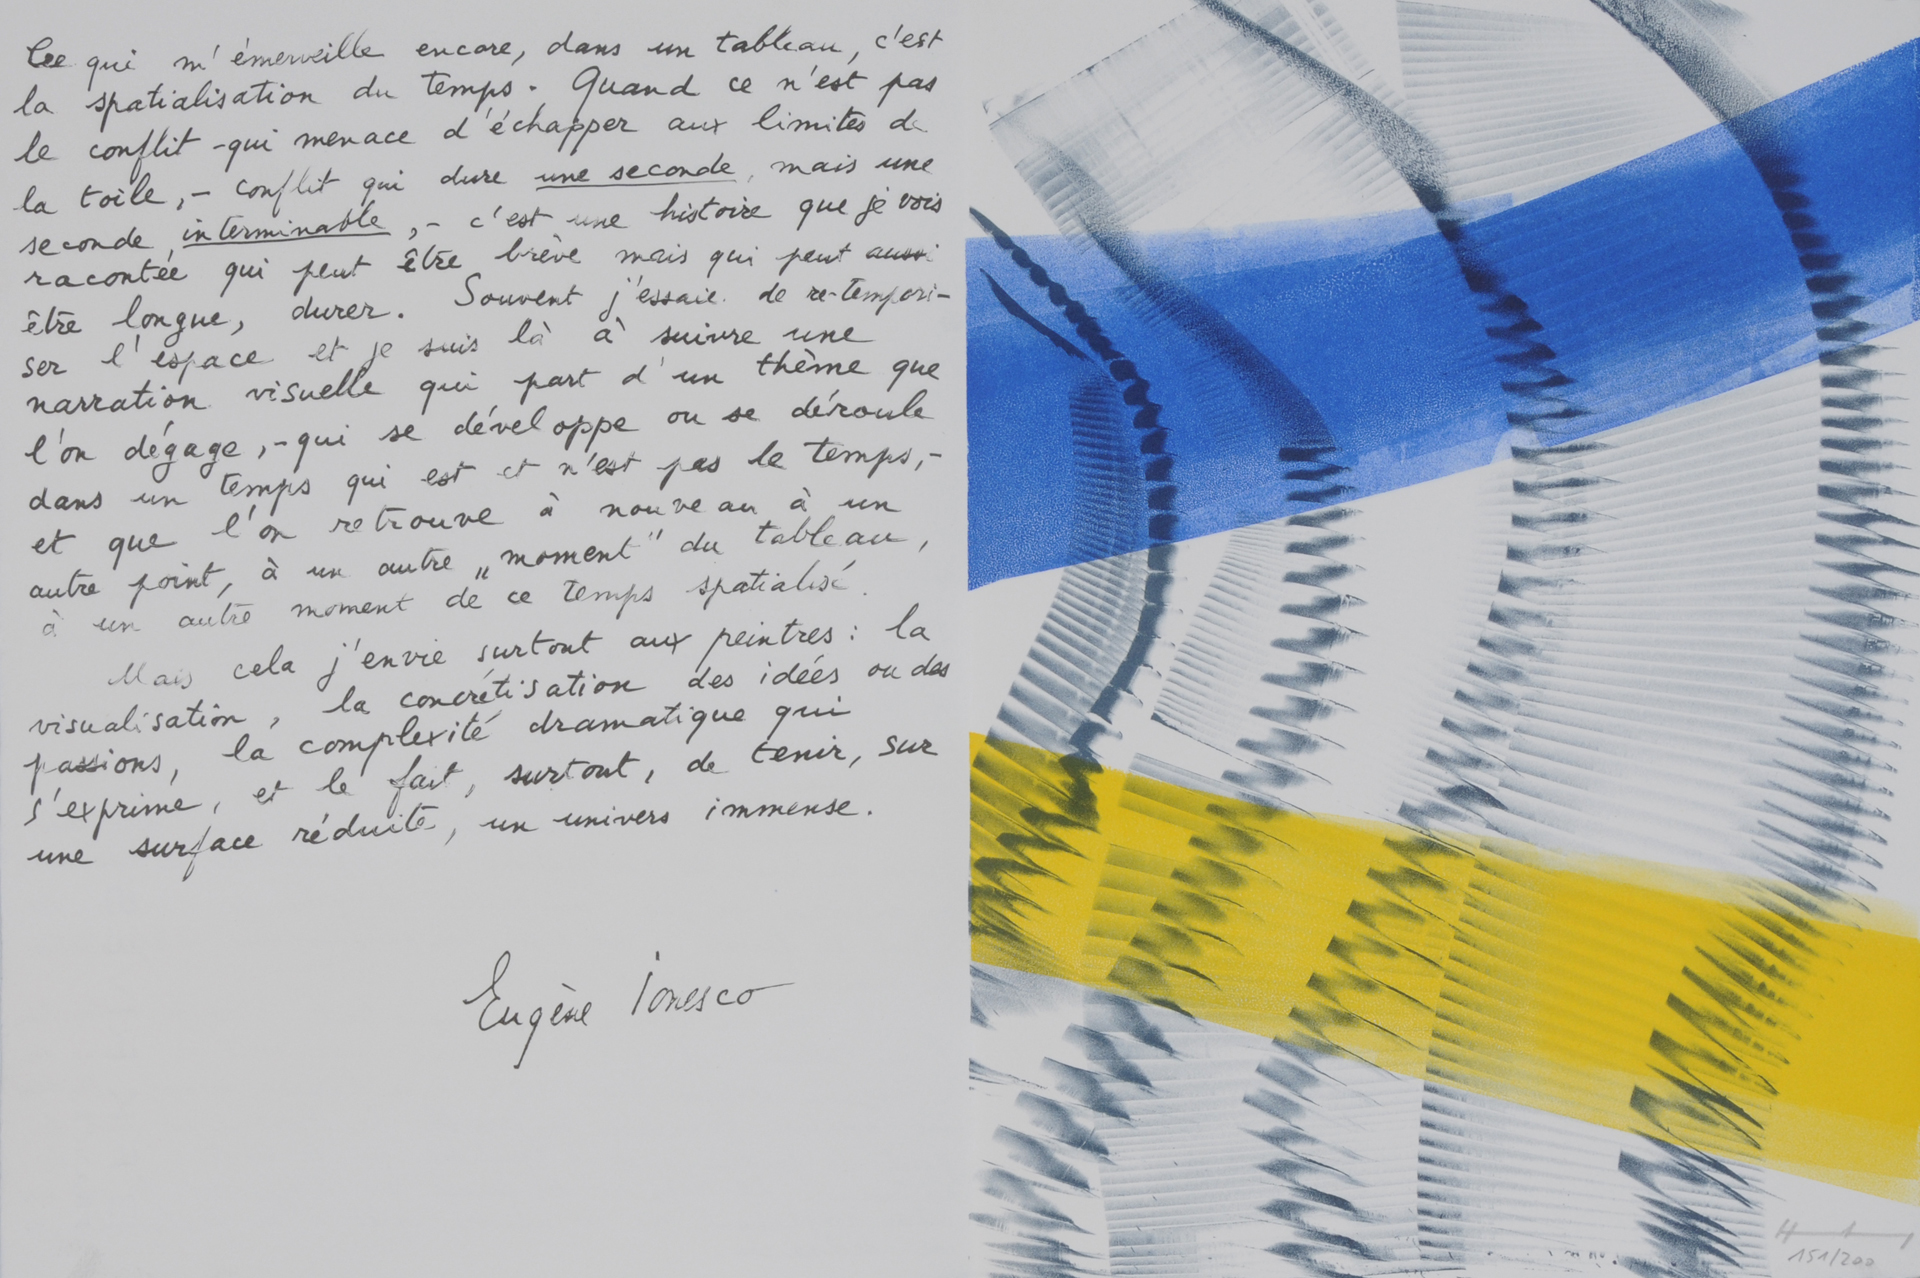 Ce qui m'émerveille encore, dans un tableau, c'est
la spatialisation du temps. Quand ce n'est pas
le conflit -qui menace d'échapper aux limites de
la toile,- conflit qui dure une seconde, mais une
seconde interminable,- c'est une histoire que je vois
racontée qui peut être brève mais qui peut aussi
être longue, durer. Souvent j'essaie de re-tempori-
ser l'espace et je suis là à suivre une
narration visuelle qui part d'un thème que
l'on dégage,-qui se développe ou se déroule
dans un temps qui est et n'est pas le temps,-
et que l'on retrouve à nouveau à un
autre point, à un autre „moment" du tableau,
à un autre moment de ce temps spatialisé.
Mais cela j'envie surtout aux peintres: la
visualisation, la concrétisation des idées ou des
passions, la complexité dramatique qui
s'exprime, et le fait, surtout, de tenir, sur
une surface réduite, un univers immense.
Eugène Ionesco
151/200